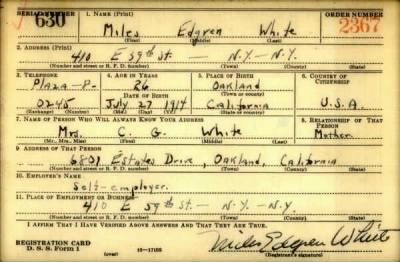 SERIAL NUMBER 1. NAME (Print) ORDER NUMBER
630 Miles Edgren White 2367
(First) (Middle) (Last)
2. ADDRESS (Print)
410 E 59th St. — N.Y. — N.Y.
(Number and street or R. F. D. number) (Town) (County) (State)
3. TELEPHONE 4. AGE IN YEARS 5. PLACE OF BIRTH 6. COUNTRY OF CITIZENSHIP
Plaza-P- 26 Oakland
DATE OF BIRTH (Town or county)
0245 July 27 1914 California U.S.A.
(Exchange) (Number) (Mo.) (Day) (Yr.) (State or country)
7. NAME OF PERSON WHO WILL ALWAYS KNOW YOUR ADDRESS 8. RELATIONSHIP OF THAT PERSON
Mrs. C. G. White Mother
(Mr., Mrs., Miss) (First) (Middle) (Last)
9. ADDRESS OF THAT PERSON
6801 Estates Drive, Oakland, California
(Number and street or R. F. D. number) (Town) (County) (State)
10. EMPLOYER'S NAME
Self-employer.
11. PLACE OF EMPLOYMENT OR BUSINESS
410 E 59th St — N.Y. — N.Y
(Number and street or R. F. D. number) (Town) (County) (State)
I AFFIRM THAT I HAVE VERIFIED ABOVE ANSWERS AND THAT THEY ARE TRUE.
REGISTRATION CARD Miles Edgren White
D. S. S. Form 1 (over) 16-17105 (Registrant's signature)